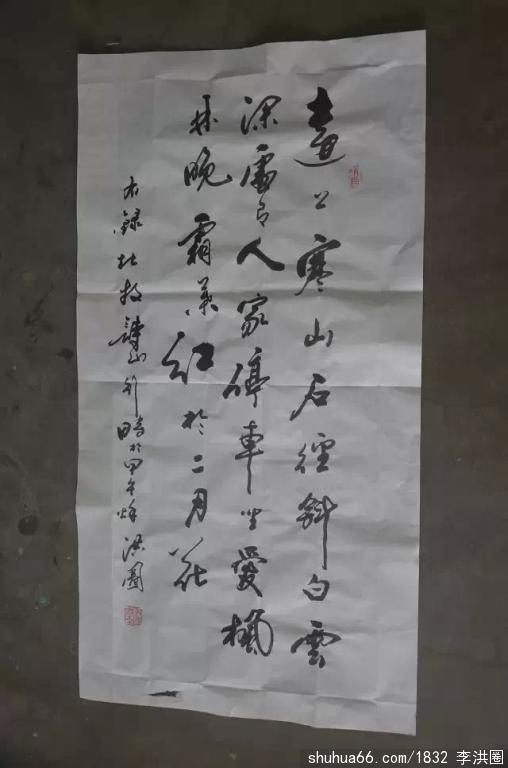 遠上寒山石徑斜白雲
深處有人家停車坐愛楓
林晚霜葉紅於二月花
右錄杜牧詩山行時於甲午秋洪圈
shuhua66.com/1832 李洪圈